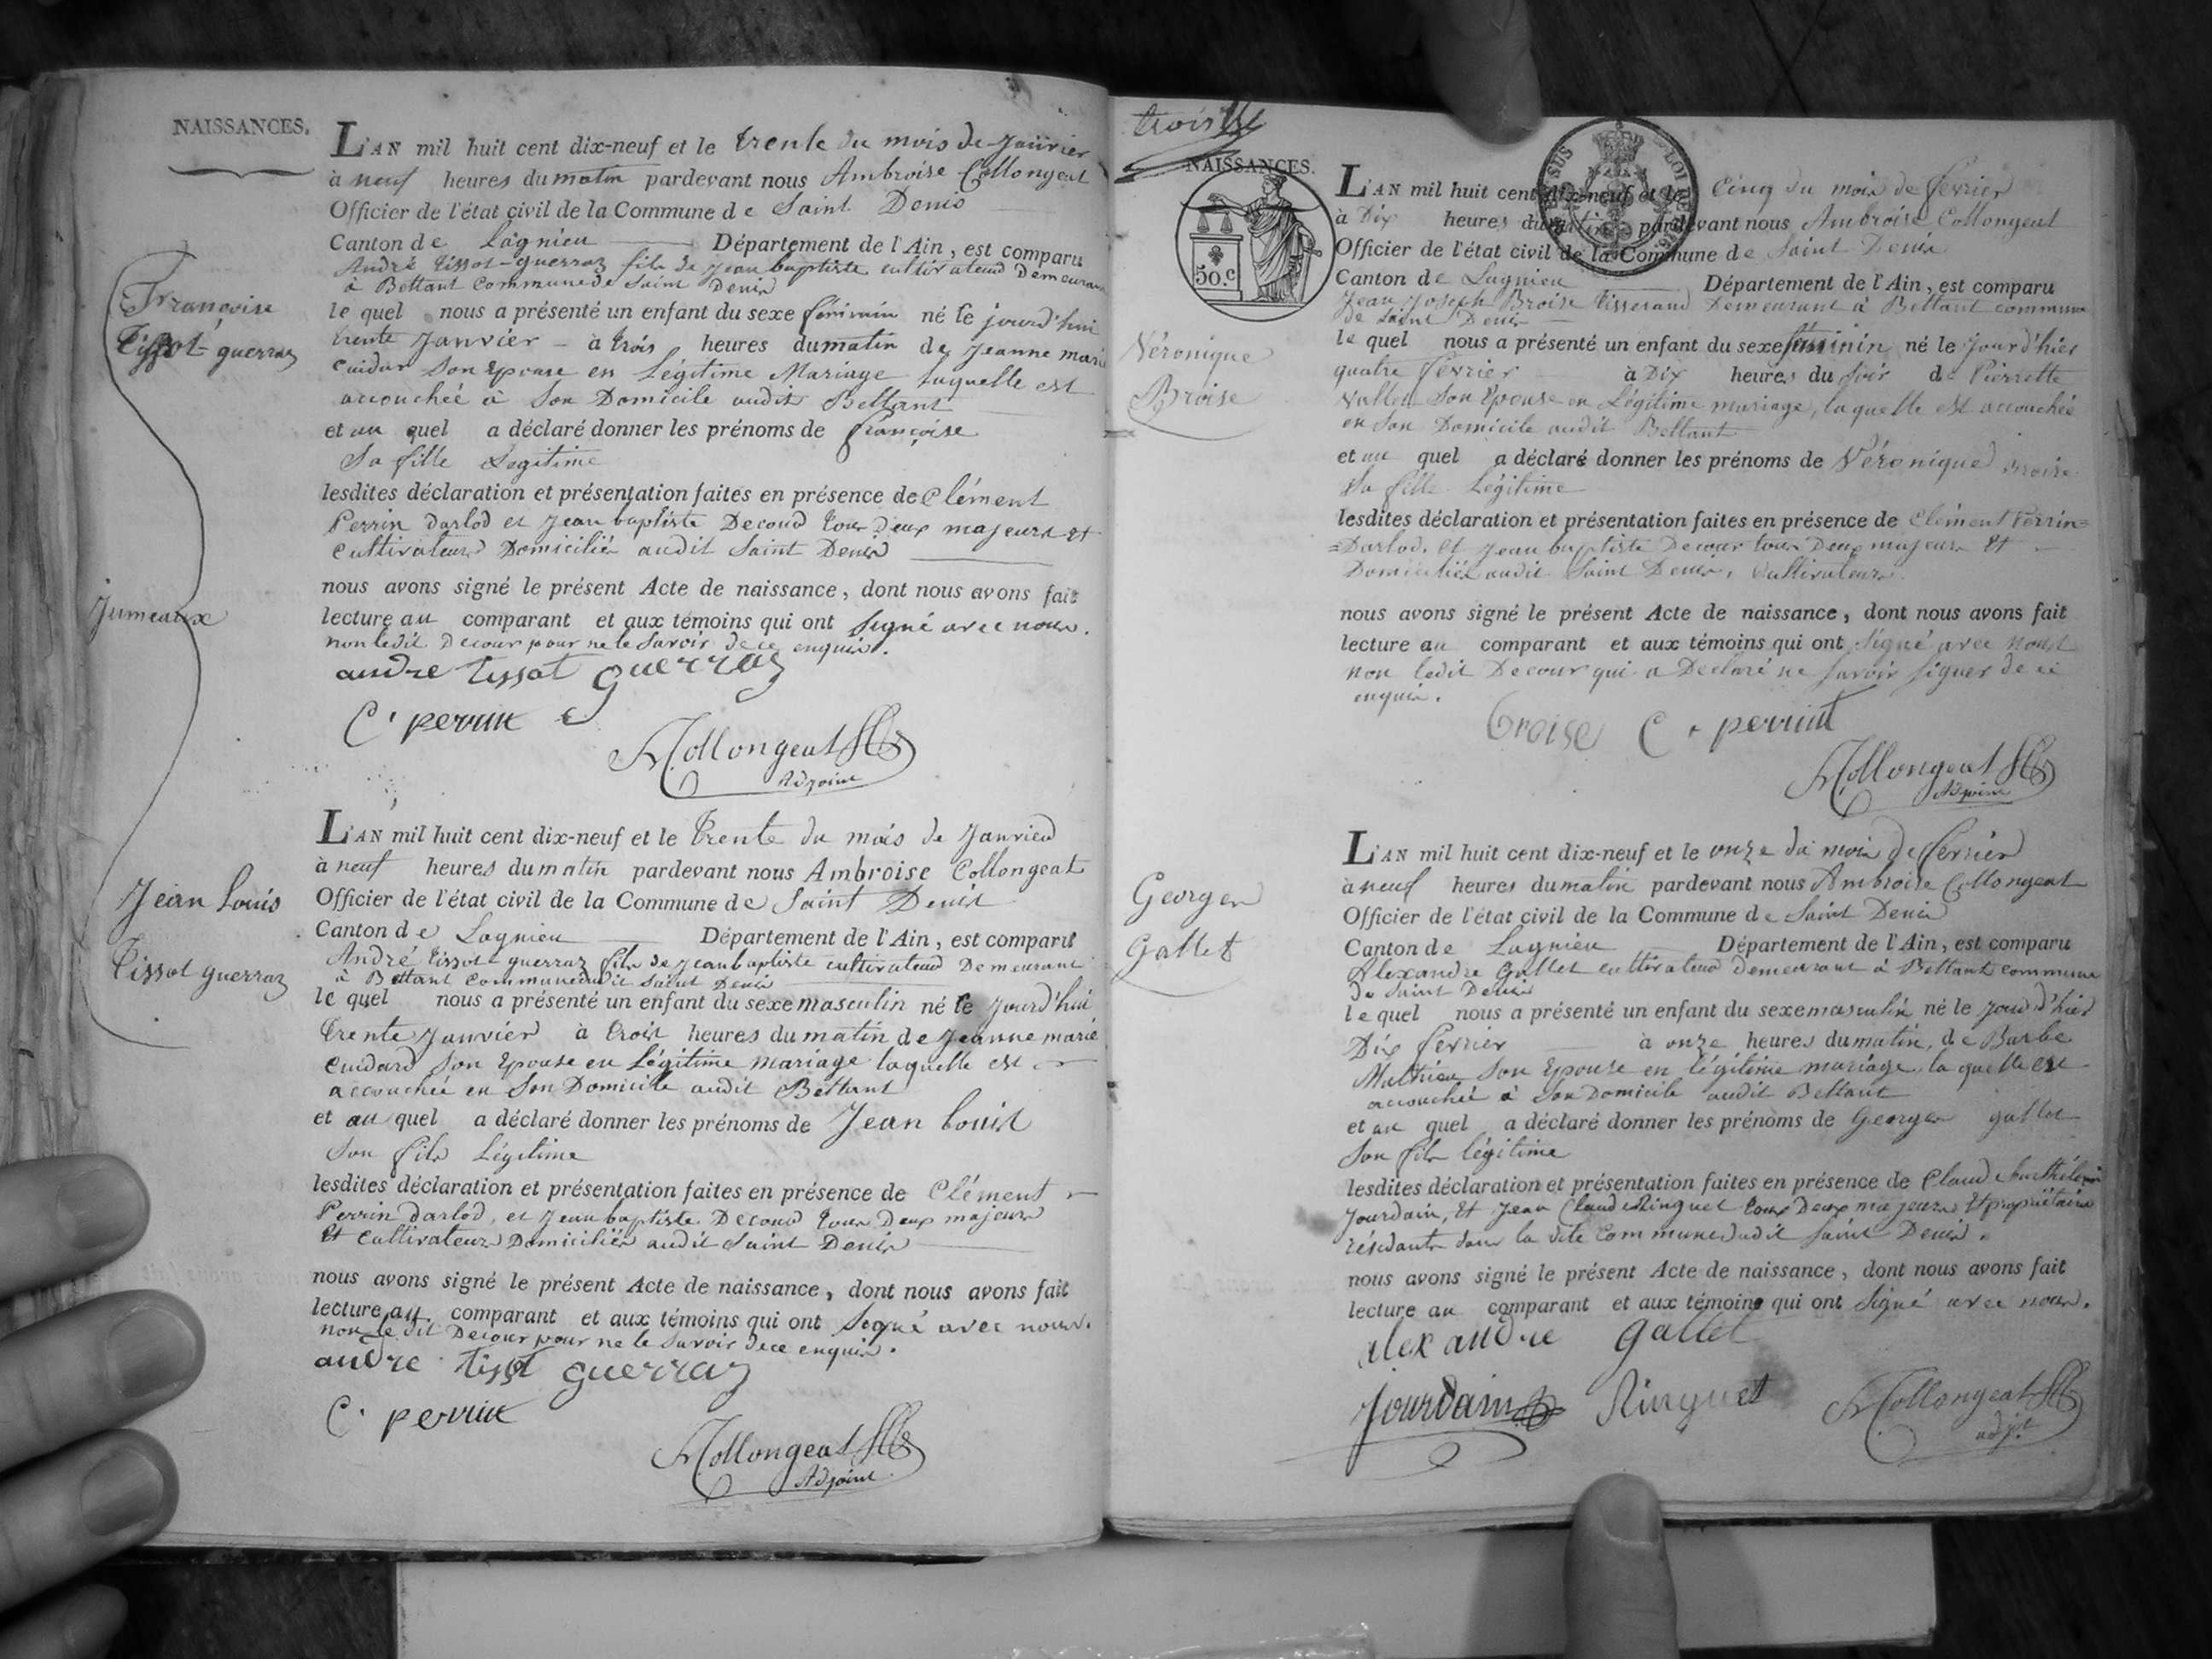 NAISSANCES.
L'AN mil huit cent dix-neuf et le trente du mois de Janvier
à neuf heures du matin pardevant nous Ambroise Collongeat
Officier de l'état civil de la Commune de Saint Denis
Canton de Lagnieu Département de l'Ain, est comparu
André tissot-guerraz fils de Jean baptiste cultivateur demeurant
à Bettant Commune de Saint Denis
le quel nous a présenté un enfant du sexe féminin né le jourd'hui
trente Janvier - à trois heures du matin de Jeanne marie
Cuidar Son Epouse en Légitime Mariage laquelle est
accouchée à Son Domicile audit Bettant
et au quel a déclaré donner les prénoms de françoise
Sa fille Légitime
lesdites déclaration et présentation faites en présence de Clément
Perrin darlod et Jean baptiste Decour tous Deux majeurs et
Cultivateurs Domiciliés audit Saint Denis
nous avons signé le présent Acte de naissance, dont nous avons fait
lecture au comparant et aux témoins qui ont Signé avec nous.
non ledit Decour pour ne le Savoir de ce enquis.
andre tissot guerraz
C. perrin
Collongeat
Adjoint
Françoise
Tissot guerraz
Jumeaux
L'AN mil huit cent dix-neuf et le trente du mois de Janvier
à neuf heures du matin pardevant nous Ambroise Collongeat
Officier de l'état civil de la Commune de Saint Denis
Canton de Lagnieu Département de l'Ain, est comparu
André tissot-guerraz fils de Jean baptiste cultivateur Demeurant
à Bettant Commune dudit Saint Denis
le quel nous a présenté un enfant du sexe masculin né le jourd'hui
trente Janvier à trois heures du matin de Jeanne marie
Cuidard Son Epouse en Légitime mariage laquelle est
accouchée en Son Domicile audit Bettant
et au quel a déclaré donner les prénoms de Jean Louis
Son fils Légitime
lesdites déclaration et présentation faites en présence de Clément
Perrin darlod, et Jean baptiste Decour tous Deux majeurs
et Cultivateurs Domiciliés audit Saint Denis
nous avons signé le présent Acte de naissance, dont nous avons fait
lecture au comparant et aux témoins qui ont Signé avec nous.
non le dit Decour pour ne le Savoir de ce enquis.
andre tissot guerraz
C. perrin
Collongeat
Adjoint
Jean Louis
Tissot guerraz
trois
NAISSANCES.
50.c
L'AN mil huit cent dix-neuf et le Cinq du mois de février
à Dix heures du matin pardevant nous Ambroise Collongeat
Officier de l'état civil de la Commune de Saint Denis
Canton de Lagnieu Département de l'Ain, est comparu
Jean Joseph Broise tisserand Demeurant à Bettant commune
de Saint Denis
le quel nous a présenté un enfant du sexe féminin né le jourd'hier
quatre février à Dix heures du Soir de Pierrette
Son Epouse en Légitime mariage, laquelle est accouchée
en Son Domicile audit Bettant
et au quel a déclaré donner les prénoms de Véronique Broise
Sa fille Légitime
lesdites déclaration et présentation faites en présence de Clément Perrin=
=Darlod, et Jean baptiste Decour tous Deux majeurs et
Domiciliés audit Saint Denis, Cultivateurs.
nous avons signé le présent Acte de naissance, dont nous avons fait
lecture au comparant et aux témoins qui ont Signé avec nous
non ledit Decour qui a Déclaré ne Savoir Signer de ce
enquis.
broise C. perrin
Collongeat
Adjoint
Véronique
Broise
L'AN mil huit cent dix-neuf et le onze du mois de février
à neuf heures du matin pardevant nous Ambroise Collongeat
Officier de l'état civil de la Commune de Saint Denis
Canton de Lagnieu Département de l'Ain, est comparu
Alexandre Gallet cultivateur demeurant à Bettant commune
de Saint Denis
le quel nous a présenté un enfant du sexe masculin né le jourd'hier
Dix février à onze heures du matin, de Barbe
Mathieu Son Epouse en légitime mariage, la quelle est
accouchée à Son Domicile audit Bettant
et au quel a déclaré donner les prénoms de Georges gallet
Son fils légitime
lesdites déclaration et présentation faites en présence de Claude barthélemi
Jourdain, et Jean Claude Ringuet tous Deux majeurs et propriétaires
résidants dans la dite Commune dudit Saint Denis.
nous avons signé le présent Acte de naissance, dont nous avons fait
lecture au comparant et aux témoins qui ont Signé avec nous.
alexandre gallet
Jourdain Ringuet Collongeat
adjt
Georges
Gallet